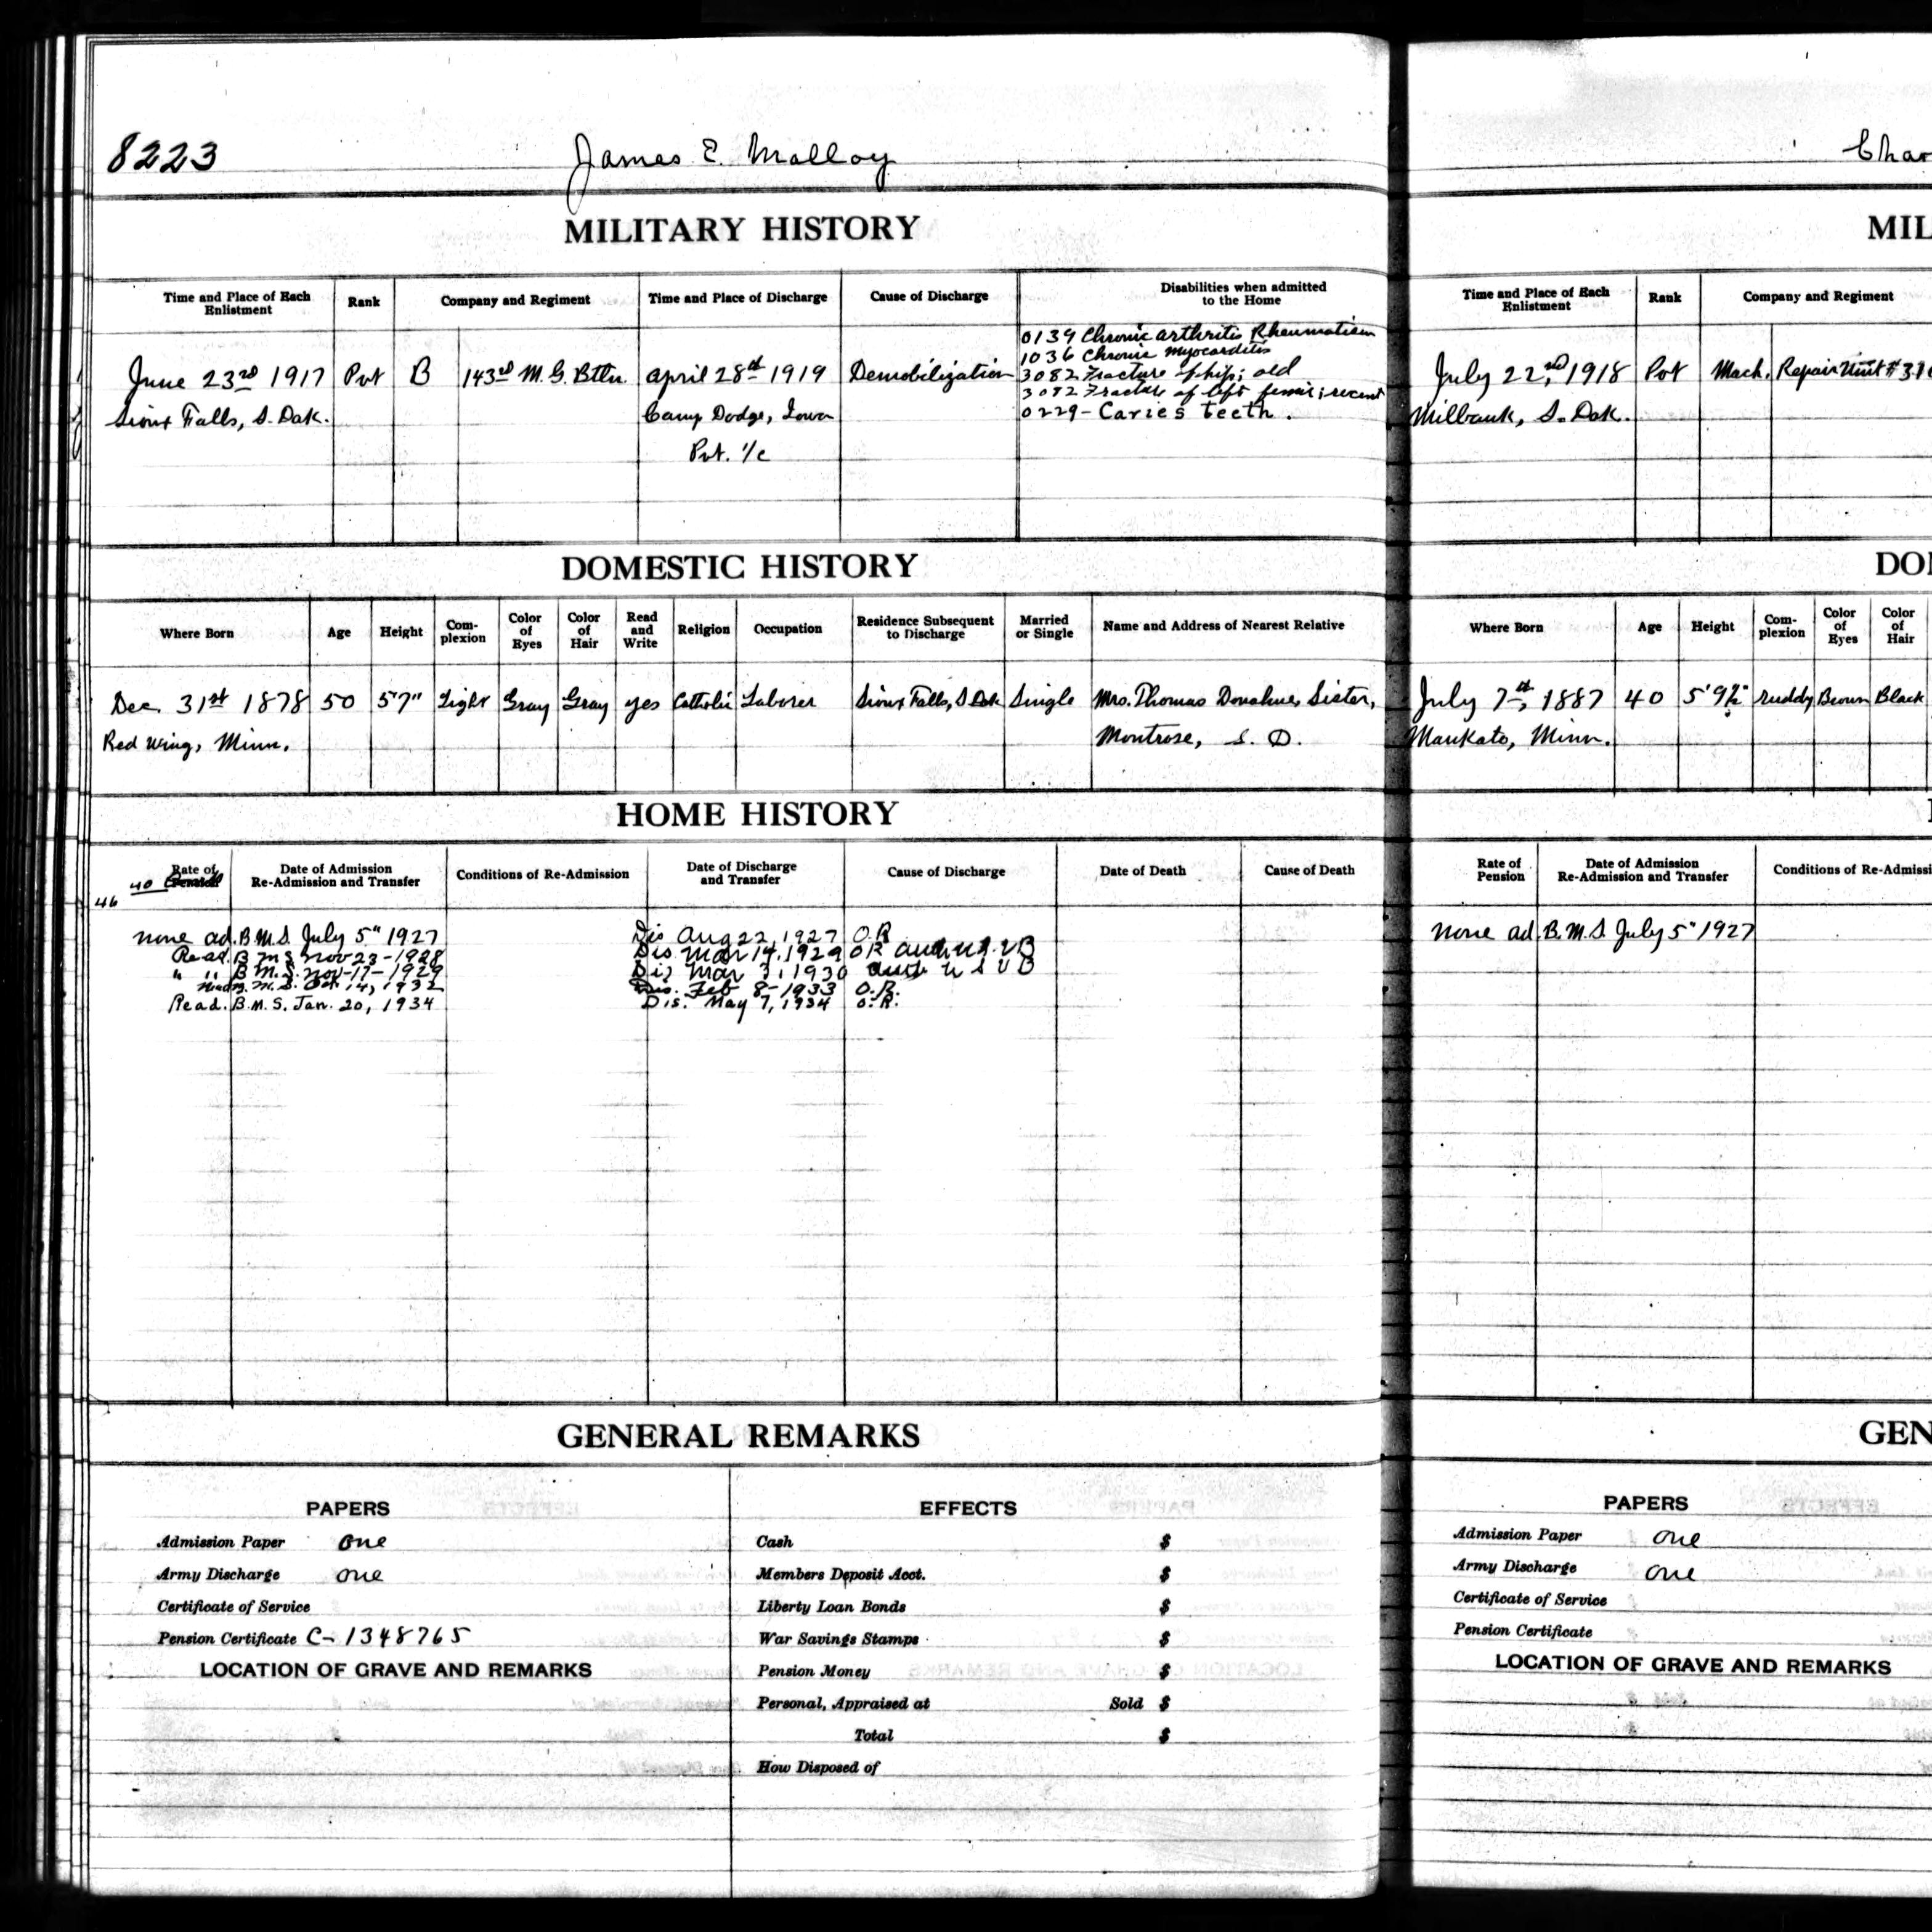 8223
James E. Malloy
MILITARY HISTORY
Time and Place of Each Enlistment
Rank
Company and Regiment
Time and Place of Discharge
Cause of Discharge
Disabilities when admitted to the Home
June 23rd 1917
Pvt
B
143rd M. G. Bttn.
April 28th 1919
Demobilization
0139 Chronic arthritis Rheumatism
1036 Chronic myocarditis
3082 Fracture of hip; old
3082 Fracture of left femur; recent
0229- Caries teeth.
Sioux Falls, S. Dak.
Camp Dodge, Iowa
Pvt. 1/c
DOMESTIC HISTORY
Where Born
Age
Height
Com-plexion
Color of Eyes
Color of Hair
Read and Write
Religion
Occupation
Residence Subsequent to Discharge
Married or Single
Name and Address of Nearest Relative
Dec. 31st 1878
50
5'7"
Light
Gray
Gray
yes
Catholic
Laborer
Sioux Falls, S Dak
Single
Mrs. Thomas Donahue, Sister,
Red Wing, Minn.
Montrose, S. D.
HOME HISTORY
Rate of Pension
Date of Admission Re-Admission and Transfer
Conditions of Re-Admission
Date of Discharge and Transfer
Cause of Discharge
Date of Death
Cause of Death
40
46
none ad. B.M.S. July 5" 1927
Dis Aug 22, 1927 O.R
Read. B M S Nov 23-1928
Dis Mar 14, 1929 OR
" " B M.S. Nov-17-1929
Dis Mar 3, 1930 U S V B
M.S. Oct 14, 1932
Dis. Feb 8-1933 O.R.
Read. B.M.S. Jan. 20, 1934
Dis. May 7, 1934 O.R.
GENERAL REMARKS
PAPERS
Admission Paper one
Army Discharge one
Certificate of Service
Pension Certificate C-1348765
LOCATION OF GRAVE AND REMARKS
EFFECTS
Cash $
Members Deposit Acct. $
Liberty Loan Bonds $
War Savings Stamps $
Pension Money $
Personal, Appraised at Sold $
Total $
How Disposed of
Char
MIL
Time and Place of Each Enlistment
Rank
Company and Regiment
July 22nd, 1918
Pvt
Mach. Repair Unit #31
Milbank, S. Dak.
DO
Where Born
Age
Height
Com-plexion
Color of Eyes
Color of Hair
July 7th, 1887
40
5'9½"
ruddy
Brown
Black
Mankato, Minn.
Rate of Pension
Date of Admission Re-Admission and Transfer
Conditions of Re-Admissi
none ad. B.M.S. July 5" 1927
GEN
PAPERS
Admission Paper one
Army Discharge one
Certificate of Service
Pension Certificate
LOCATION OF GRAVE AND REMARKS